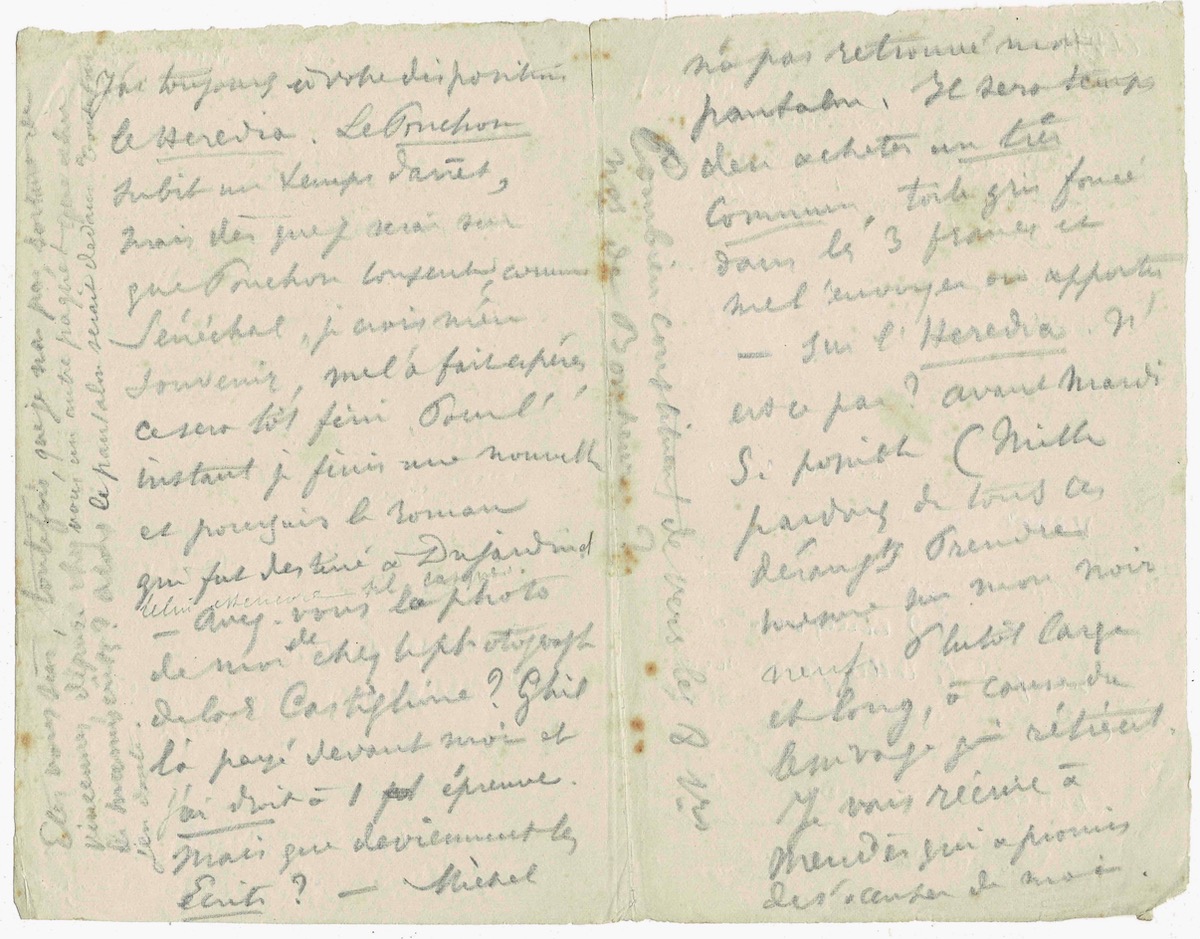 J'ai toujours à votre disposition
le Heredia. Le Ponchon
subit un temps d'arrêt,
mais dès que je serai sur
que Ponchon consent, comme
Sénéchal, je crois m'en
souvenir, me l'a fait espérer
ce sera tôt fini. Pour l'
instant je finis une nouvelle
et poursuis le roman
qui fut destiné à Dujardin et
— Avez-vous la photo
de moi de chez le photograph
de la r. Castiglione? Ghil
l'a payé devant moi et
j'ai droit à 1 épreuve.
Mais que deviennent les
Écrits? — Michel
n'a pas retrouvé mon
pantalon. Il sera temps
d'en acheter un très
commun, toile gris foncé
dans les 3 francs et
me l'envoyer ou apporter
— Sur l'Heredia. N'
est-ce pas? avant Mardi
Si possible (Mille
pardons de tous ces
dérangts Prendre
mesure sur mon noir
neuf. Plutôt large
et long, à cause du
lavage qui rétrécit.
Je vais réécrire à
Mendès qui a promis
de s'occuper de moi.
Combien constituent de vers les
nos de Bonheur?
Êtes-vous sûr, toutefois, que je n'ai pas, sortant de
Vincennes, déposé chez vous un autre paquet que celui
des manuscrits? alors le pantalon serait dedans
j'en doute.